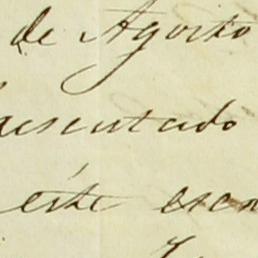 de Agosto
esentado
este